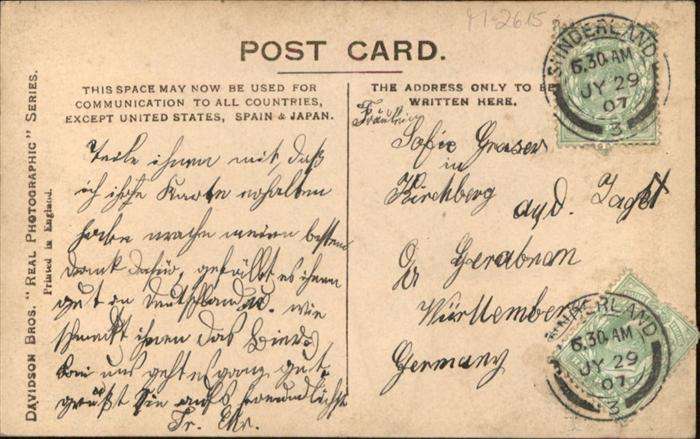 YI-2615
POST CARD.
THIS SPACE MAY NOW BE USED FOR
COMMUNICATION TO ALL COUNTRIES,
EXCEPT UNITED STATES, SPAIN & JAPAN.
THE ADDRESS ONLY TO BE
WRITTEN HERE.
DAVIDSON BROS. "REAL PHOTOGRAPHIC" SERIES.
Printed in England.
Teile ihnen mit daß
ich ihre Karte erhalten
habe meinen besten
Dank dafür, gefällt es ihnen
gut in Deutschland. wie
schmeckt ihnen das Bier
bei uns geht es ganz gut
grüßt Sie aufs freundlichst
Fr.
Fräulein
Sofie Graser
in
Kirchberg a/d. Jagst
Gerabronn
Württemberg
Germany
SUNDERLAND
6.30 AM
JY 29
07
3
SUNDERLAND
6.30 AM
JY 29
07
3